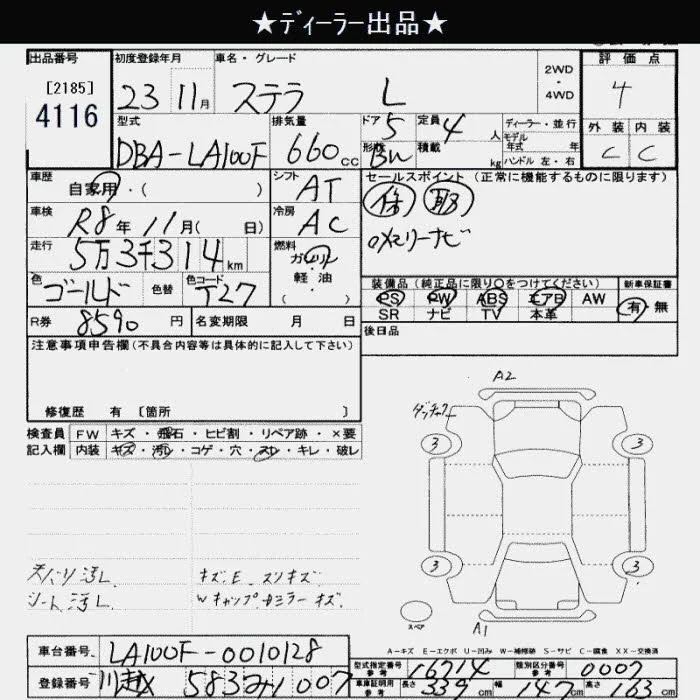 ★ディーラー出品★
出品番号
[2185]
4116
初度登録年月
23 11月
車名・グレード
ステラ L
2WD
・
4WD
評価点
4
外装 内装
C C
型式
DBA-LA100F
排気量
660cc
ドア 5
形状 BW
定員 4人
積載 kg
ディーラー・並行
モデル
年式 年
ハンドル 左・右
車歴
自家用・( )
シフト
AT
セールスポイント (正常に機能するものに限ります)
保 取
メモリーナビ
車検
R8年 11月( 日)
冷房
AC
走行
5万3千314km
燃料
ガソリン
軽・油
( )
色
ゴールド
色替
色コード
T27
装備品(純正品に限り○をつけてください)
PS PW ABS エアB AW
SR ナビ TV 本革
新車保証書
有 無
R券 8590円
名変期限 月 日
後日品
注意事項申告欄(不具合内容等は具体的に記入して下さい)
修復歴 有 [箇所 ]
検査員
記入欄
FW キズ・飛石・ヒビ割・リペア跡・×要
内装 キズ・汚レ・コゲ・穴・スレ・キレ・破レ
天バリ汚L
シート汚L
キズE スリキズ
Wキャップ ミラーキズ
A2
3 3
3 3
スペア
A1
A-キズ E-エクボ U-凹み W-補修跡 S-サビ C-腐食 XX-交換済
車台番号 LA100F-0010128
登録番号 川越 583 み1007
型式指定番号
参考
16714
類別区分番号
参考
0007
車庫証明用
参考
長さ 339cm 幅 147cm 高さ 163cm